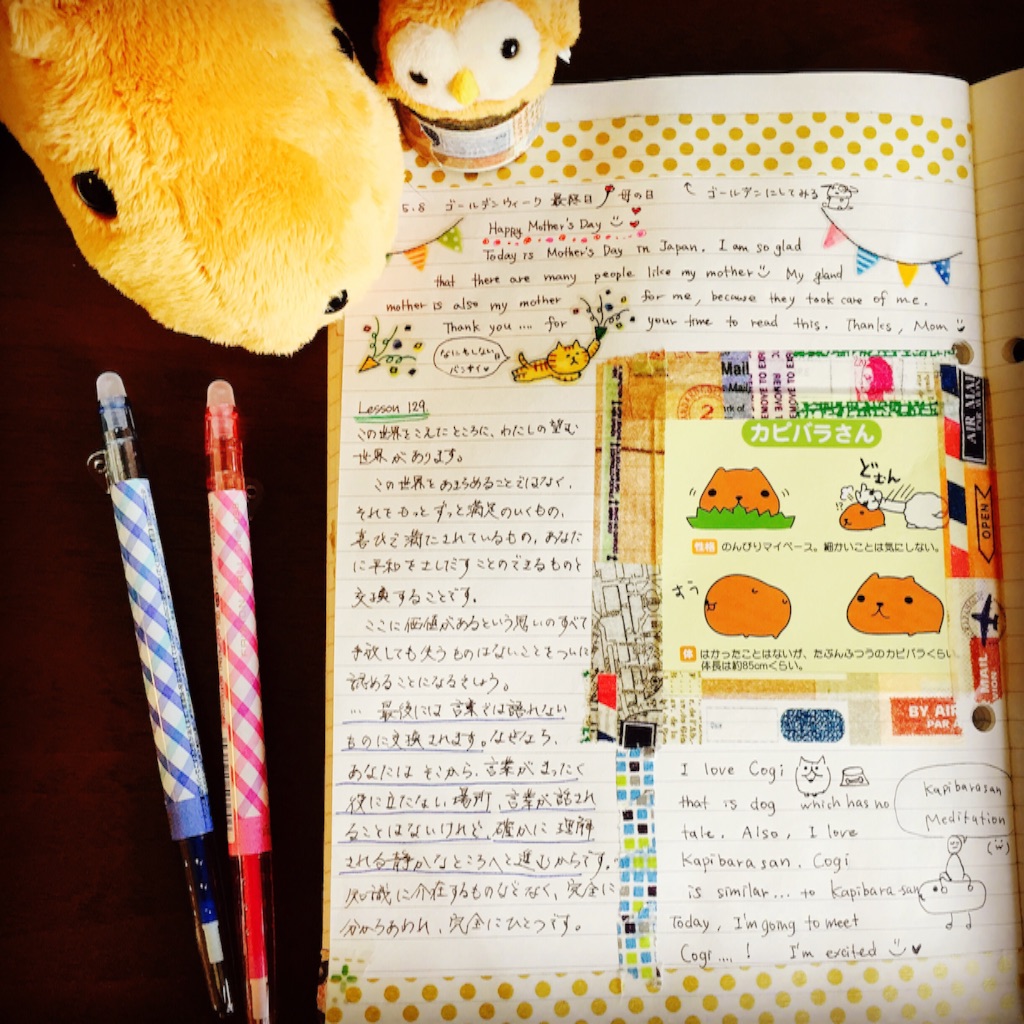 5.8 ゴールデンウィーク 最終日 母の日
ゴールデンにしてみる
Happy Mother's Day
Today is Mother's Day in Japan. I am so glad
that there are many people like my mother My gland
mother is also my mother for me, because they took care of me.
Thank you .... for your time to read this. Thanks, Mom
なにもしない日
バンザイ
Lesson 129
この世界をこえたところに、わたしの望む
世界があります。
この世界をあきらめることではなく、
それをもっとずっと満足のいくもの、
喜びで満たされているもの、あなた
に平和をさしだすことのできるものと
交換することです。
ここに価値があるという思いのすべて
手放しても失うものはないことをついに
認めることになるでしょう。
… 最後には言葉では語れない
ものに交換されます。なぜなら、
あなたはそこから、言葉がまったく
役に立たない場所、言葉が話され
ることはないけれど、確かに理解
される静かなところへと進むからです。
知識に介在するものなどなく、完全に
分かちあわれ、完全にひとつです。
Mail
Mail
rk of
REMOVE TO EX
2
AIR MAIL
OPEN
カピバラさん
どむん
!?
性格 のんびりマイペース。細かいことは気にしない。
体 はかったことはないが、たぶんふつうのカピバラくらい。
体長は約85cmくらい。
MAIL
VION
BY AIR
PAR A
I love Cogi
that is dog which has no
tale. Also, I love
Kapibarasan. Cogi
is similar... to Kapibarasan
Today, I'm going to meet
Cogi....! I'm excited
Kapibarasan
Meditation